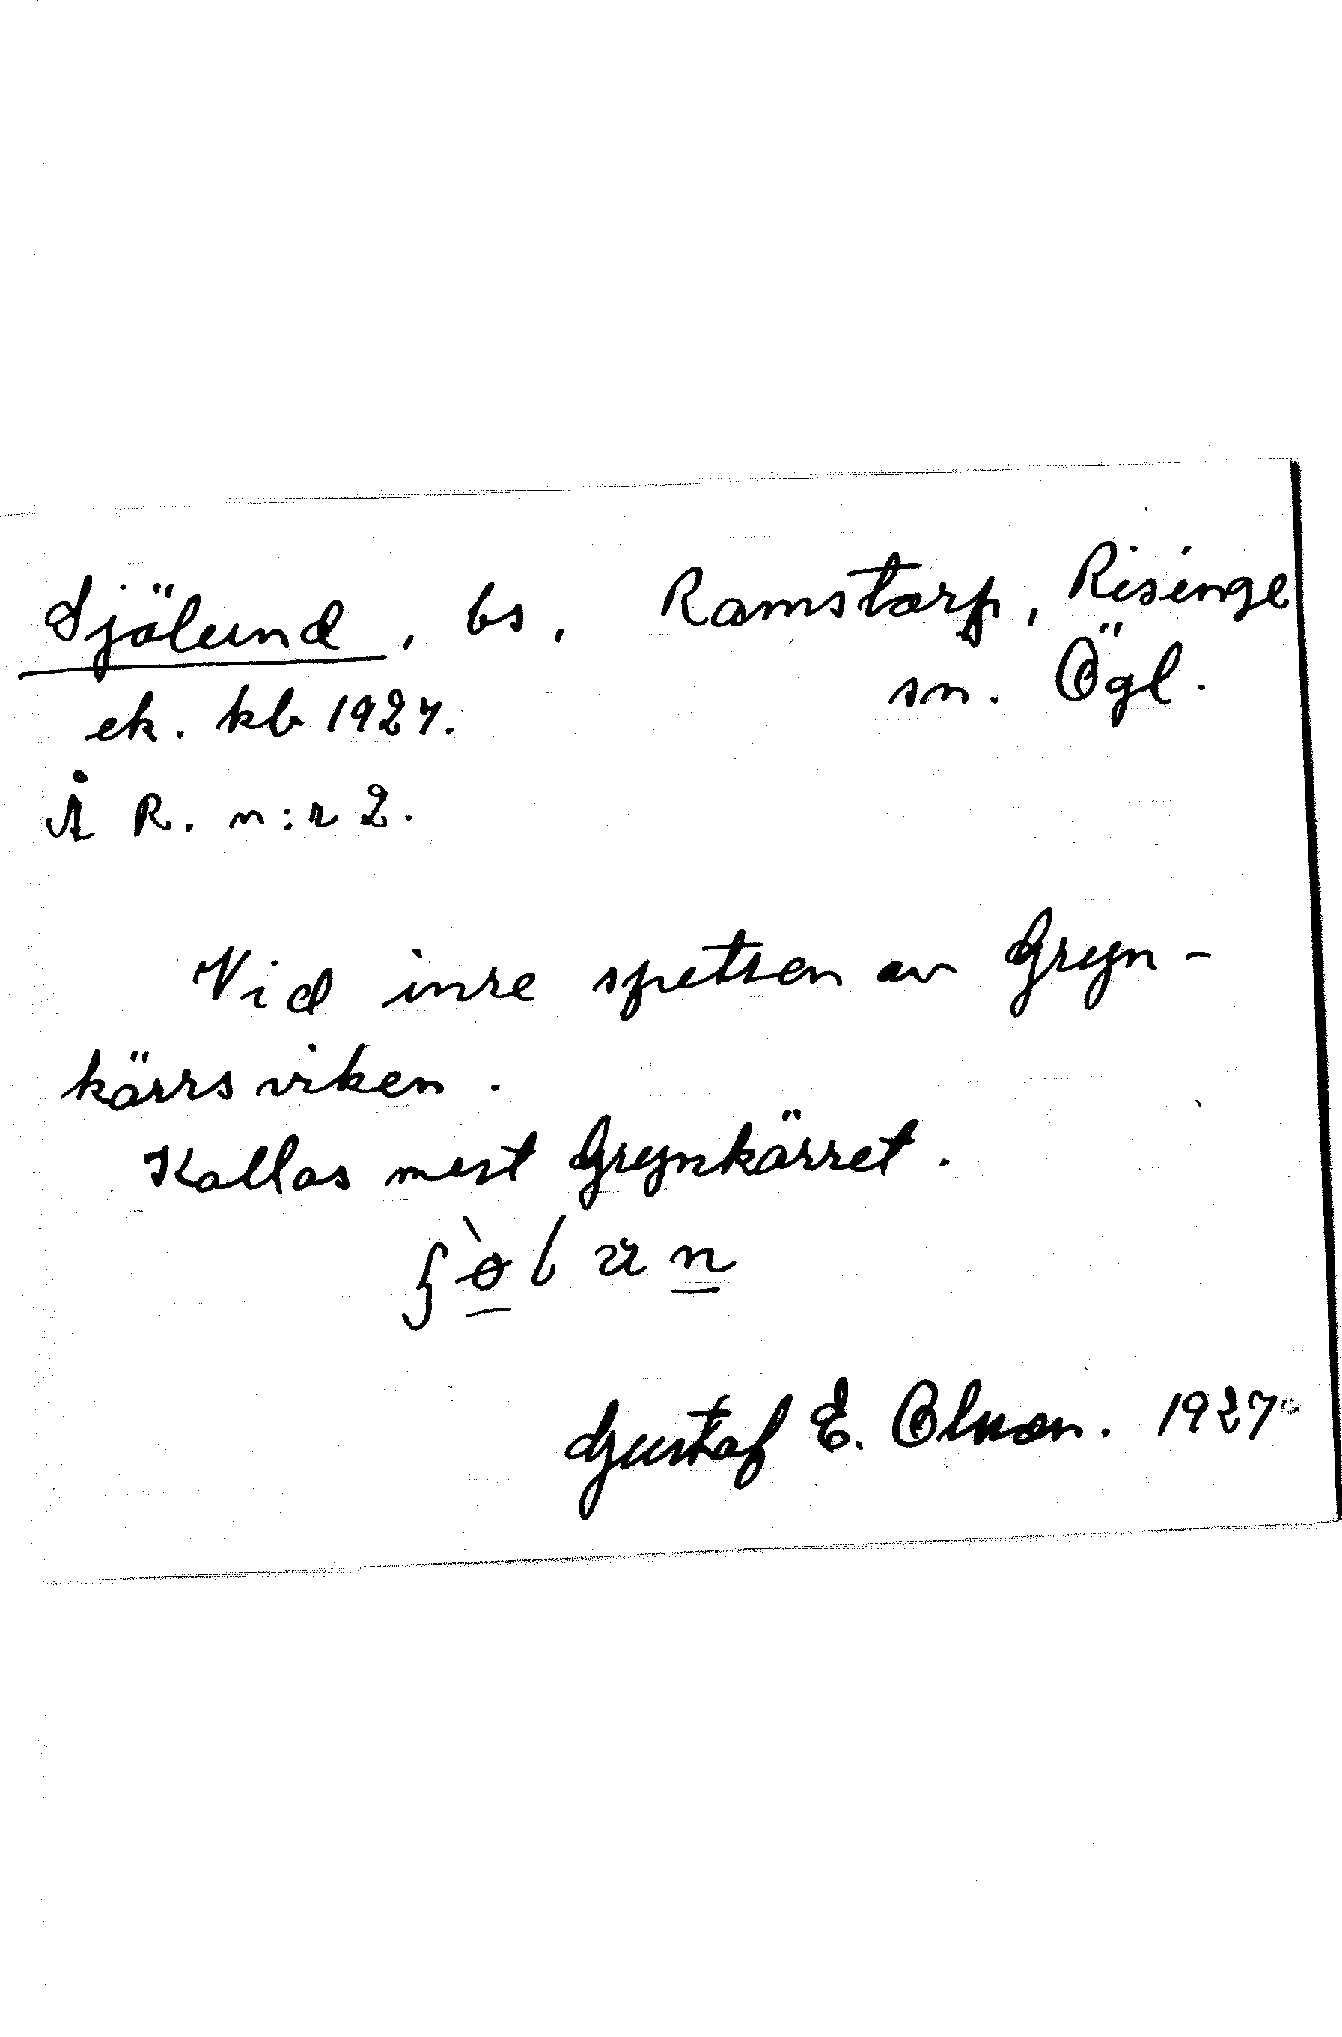 Sjölund, bs, Ramstorp, Risinge
ek. kb 1927. sn. Ögl.
Å R. n:r 2.
Vid inre spetsen av Gryn-
kärrsviken.
Kallas mest Grynkärret.
Gustaf E. Olsson. 1927